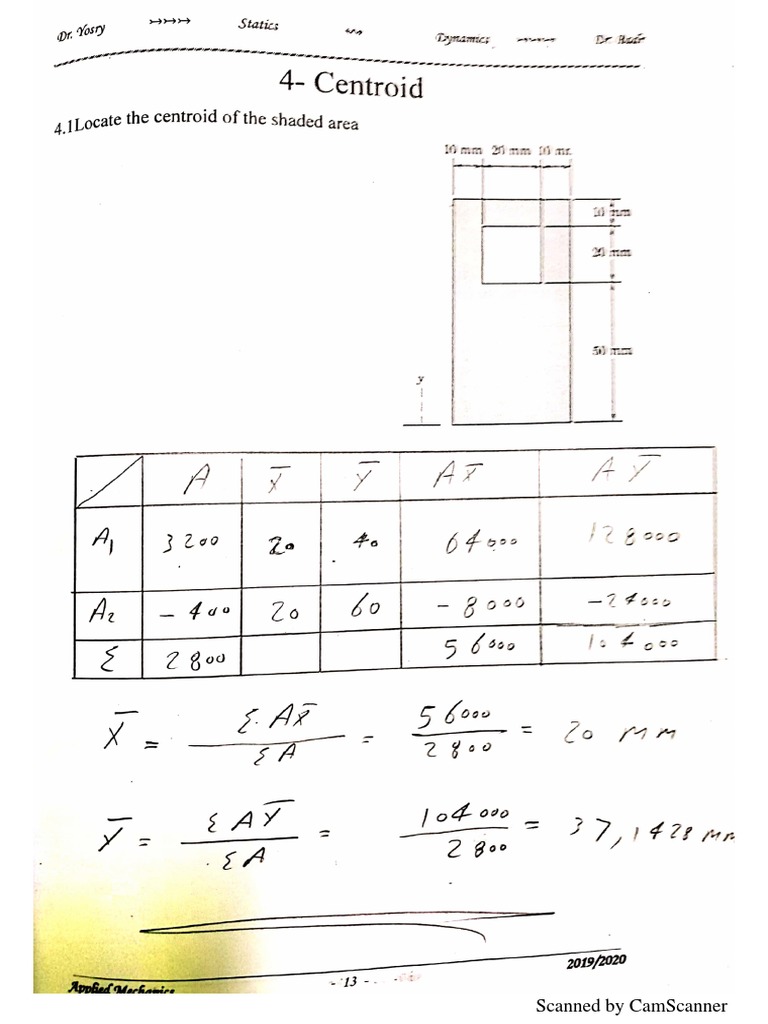 Dr. Yosry Statics Dynamics Dr. Badr
4- Centroid
4.1Locate the centroid of the shaded area
10 mm 20 mm 10 mm
10 mm
20 mm
50 mm
y
A X̅ Y̅ AX̅ AY̅
A₁ 3200 20 40 64000 128000
A₂ - 400 20 60 - 8000 -24000
Σ 2800 56000 104000
X̅ = ΣAX̅ / ΣA = 56000 / 2800 = 20 mm
Y̅ = ΣAY̅ / ΣA = 104000 / 2800 = 37,1428 mm
Applied Mechanics - 13 - 2019/2020
Scanned by CamScanner